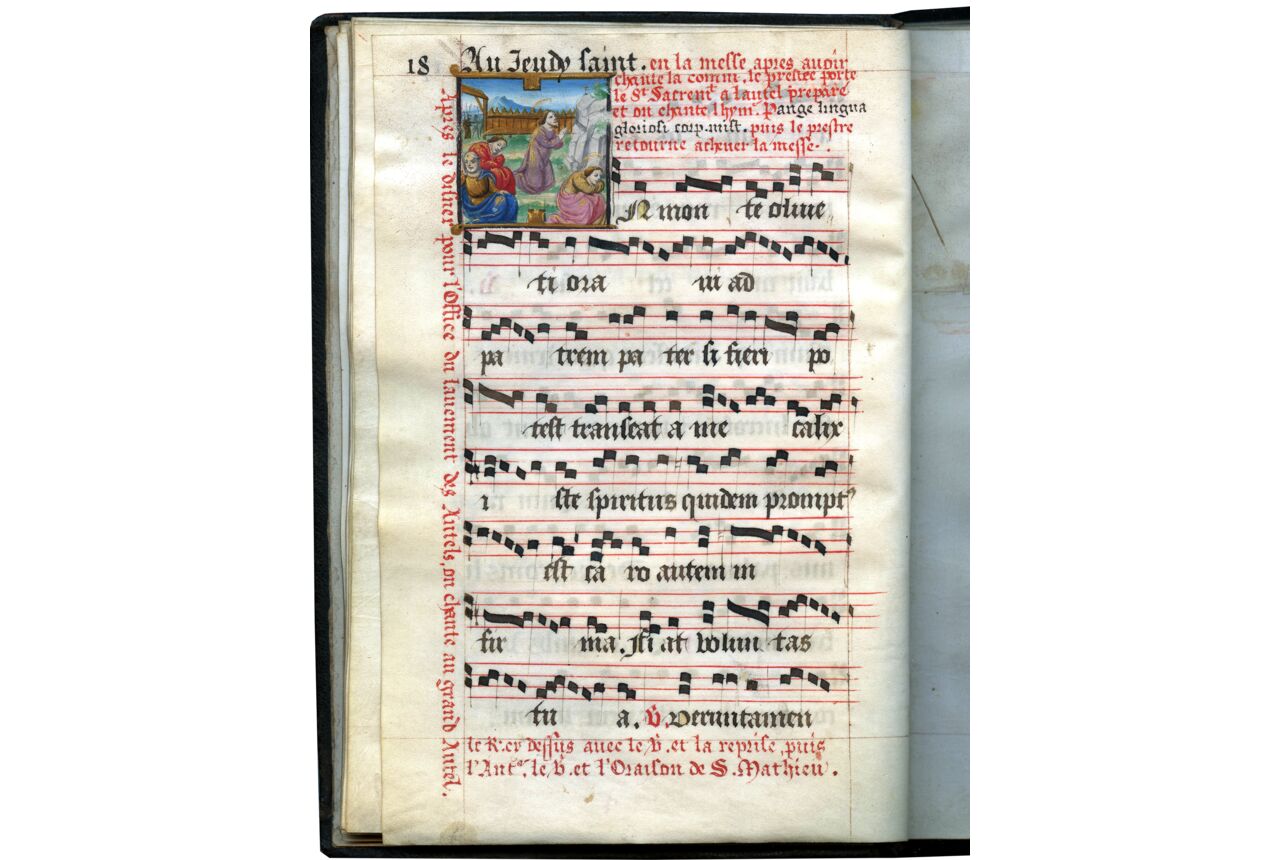 18 Au Jeudy saint. en la messe apres auoir
chante la comm. le prestre porte
le St Sacremt a lautel prepare
et on chante lhym. Pange lingua
gloriosi corp. mist. puis le prestre
retourne acheuer la messe.
N mon te oliue
ti ora uit ad
pa trem pa ter si fieri po
test transeat a me calix
i ste spiritus quidem prompt⁹
est ca ro autem in
fir ma. fi at volun tas
tu a. ℣. Veruntamen
le R. cy dessus auec le ℣. et la reprise, puis
l'Anta. le ℣. et l'Oraison de S. Mathieu.
Apres le disner pour l'Office du lauement des Autels, on chante au grand Autel.